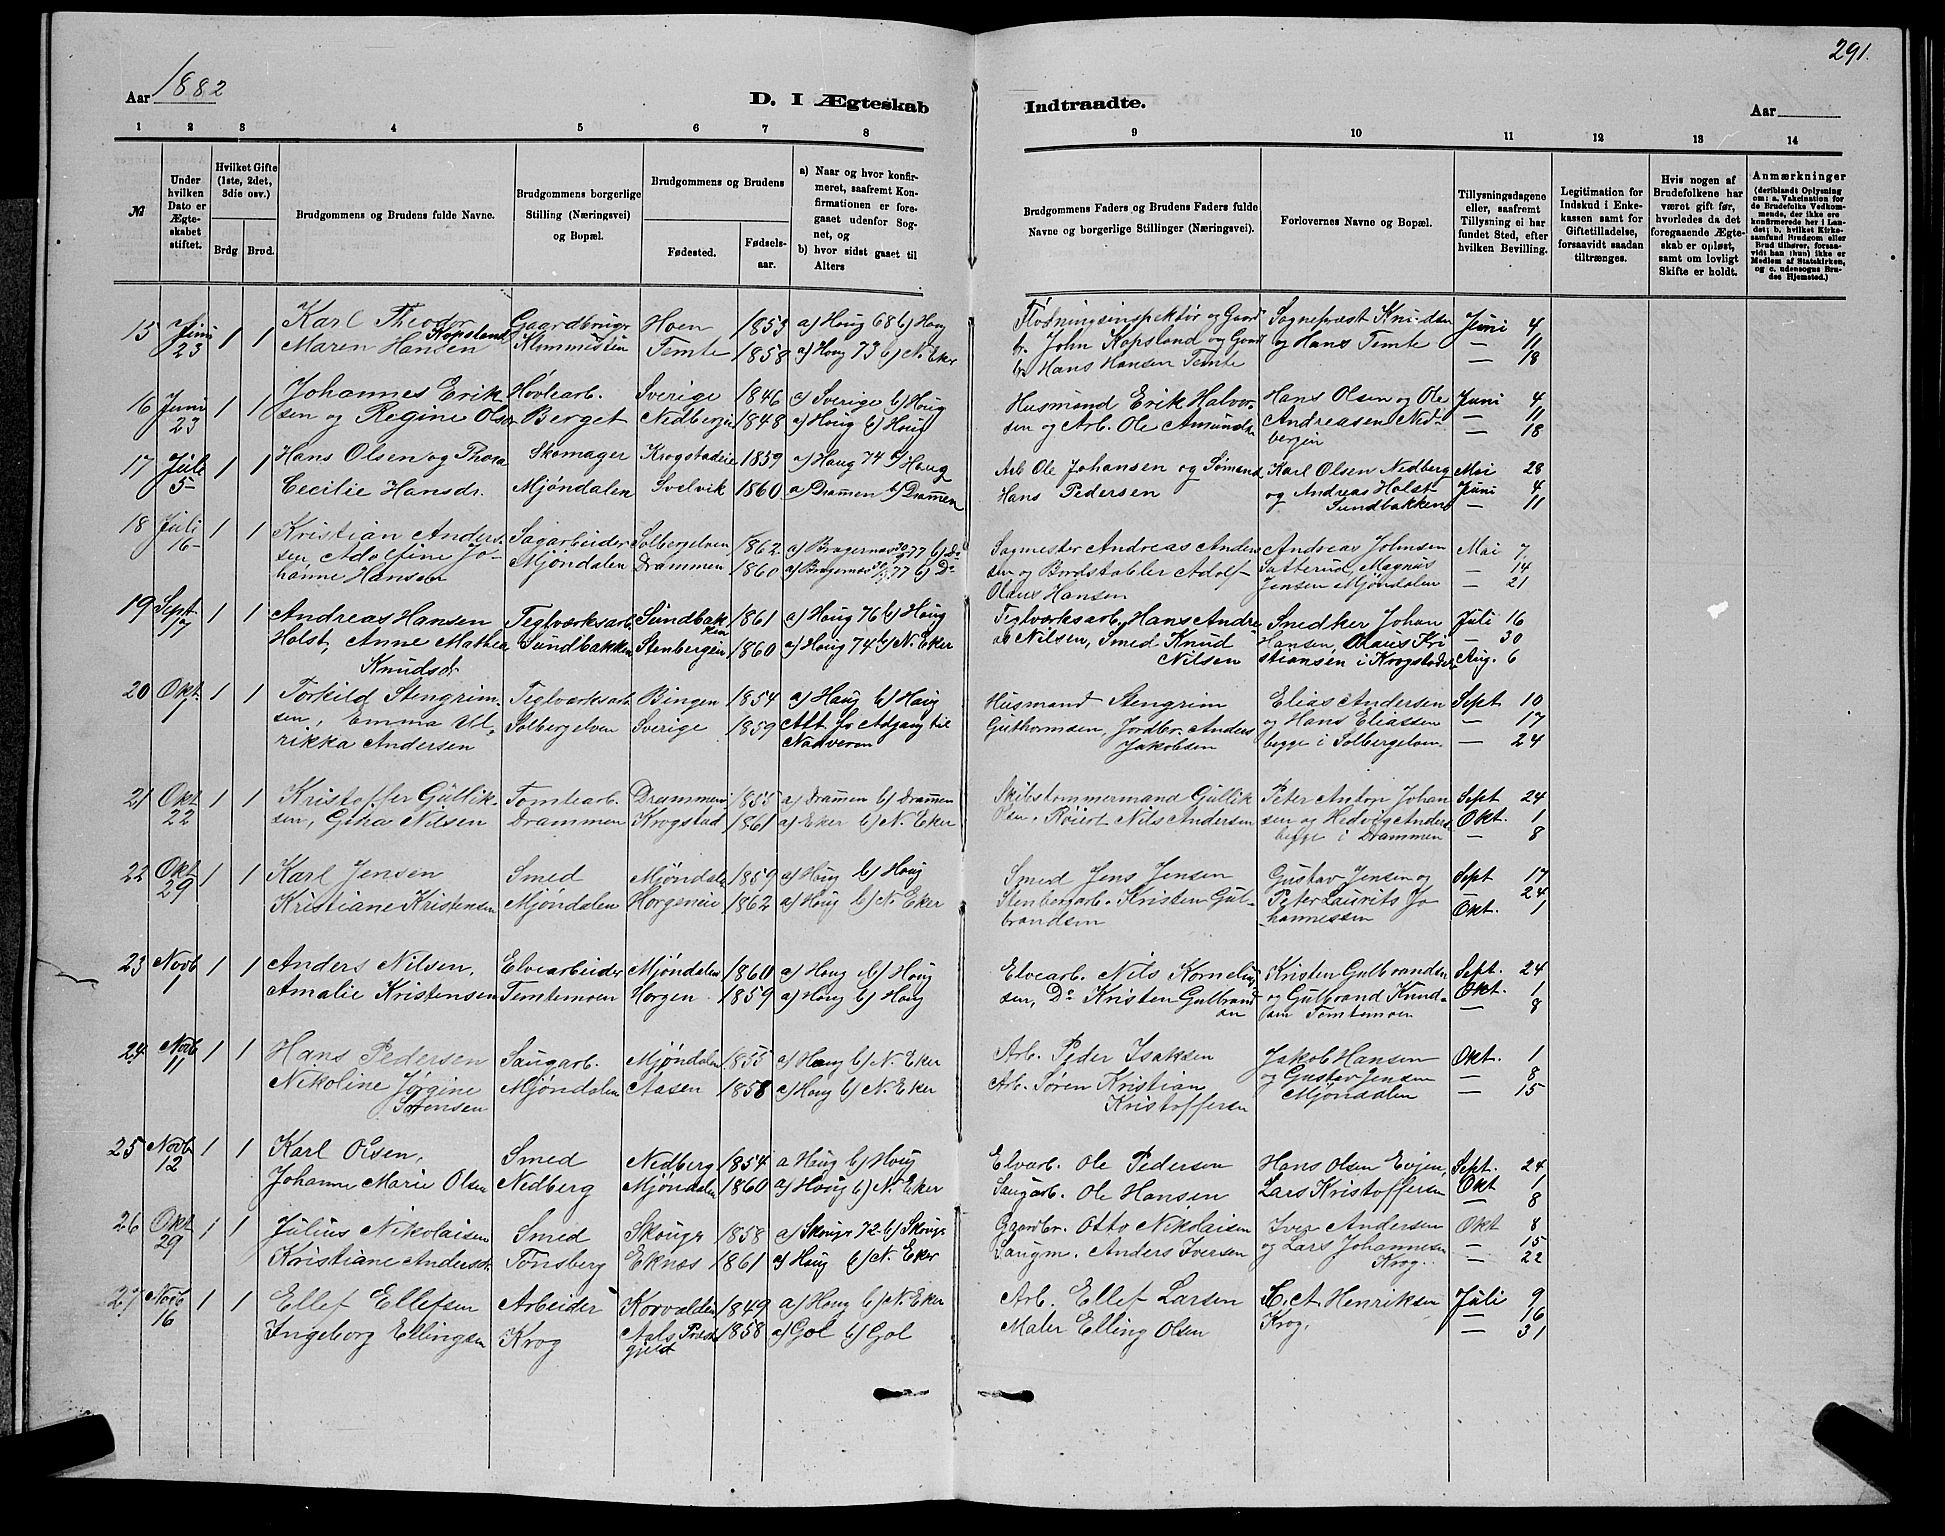 291.
Aar 1882
D. I Ægteskab
Indtraadte.
Aar
1 2 3 4 5 6 7 8
9 10 11 12 13 14
№
Under hvilken Dato er Ægteskabet stiftet.
Hvilket Gifte (1ste, 2det, 3die osv.)
Brdg Brud.
Brudgommens og Brudens fulde Navne.
Brudgommens borgerlige Stilling (Næringsvei) og Bopæl.
Brudgommens og Brudens
Fødested.
Fødselsaar.
a) Naar og hvor konfirmeret, saafremt Konfirmationen er foregaaet udenfor Sognet, og
b) hvor sidst gaaet til Alters
Brudgommens Faders og Brudens Faders fulde Navne og borgerlige Stillinger (Næringsvei).
Forlovernes Navne og Bopæl.
Tillysningsdagene eller, saafremt Tillysning ei har fundet Sted, efter hvilken Bevilling.
Legitimation for Indskud i Enkekassen samt for Giftetilladelse, forsaavidt saadan tiltrænges.
Hvis nogen af Brudefolkene har været gift før, hvorledes da det foregaaende Ægteskab er opløst, samt om lovligt Skifte er holdt.
Anmærkninger
(deriblandt Oplysning om: a. Vakcination for de Brudefolks Vedkommende, der ikke ere konfirmerede her i Landet; b. hvilket Kirkesamfund Brudgom eller Brud tilhører, forsaavidt han (hun) ikke er Medlem af Statskirken, og c. udensogns Brudes Hjemsted.)
15 Juni 1 1 Karl Theodor Kopsland Gaardbruger Hoen 1853 a) Houg 68 b) Houg Flødningsinspektør og Gaard Sogneprest Knudsen Juni 4
23 Maren Hansen Temte 1858 a) Houg 73 b) N. Eker br. John Kopsland og Gaard og Hans Temte — 11
br. Hans Hansen Temte — 18
16 Juni 1 1 Johannes Erik- Høvlearb. Sverige 1846 a) Sverige b) Houg Husmand Erik Halvor- Hans Olsen og Ole Juni 4
23 sen og Regine Olsen Berget Nedbergei 1848 a) Houg b) Houg sen og Arb. Ole Amundsen Andreasen Ned- — 11
bergei — 18
17 Juli 1 1 Hans Olsen og Thora Skomager Krogstadeie 1859 a) Houg 74 b) Houg Arb Ole Johansen og Sømand Karl Olsen Nedberg Mai 28
5 Cecilie Hansdr. Mjøndalen Svelvik 1860 a) Drammen b) Drammen Hans Pedersen og Andreas Holst Juni 4
Sundbakken — 11
18 Juli 1 1 Kristian Ander- Sagarbeider Solbergelven 1862 a) Bragernes 77 b) Do Sagmester Andreas Ander Andreas Johnsen Mai 7
16 sen, Adolfine Jo- Mjøndalen Drammen 1860 a) Bragernes 77 b) Do sen og Bordstabler Adolf Sætterud, Magnus — 14
hanne Hansen Olaus Hansen Jensen Mjøndalen — 21
19 Sept 1 1 Andreas Hansen Teglværksarb. Sundbakken 1861 a) Houg 76 b) Houg Teglværksarb. Hans Andre- Snedker Johan Juli 16
17 Holst, Anne Mathea Sundbakken Stenbergen 1860 a) Houg 74 b) N. Eker as Nilsen, Smed Knud Hansen, Olaus Kri — 30
Knudsdr Nilsen stiansen i Krogstadeie Aug. 6
20 Okt. 1 1 Torkild Stengrim- Teglværksarb Bingen 1854 a) Houg b) Houg Husmand Stengrim Elias Andersen Sept 10
1 sen, Emma Ul- Solbergelven Sverige 1859 Att. fo Adgang til Guthormsen, Jordbr. Anders og Hans Eliassen — 17
rikka Andersen Nadveren Jakobsen begge i Solbergelven — 24
21 Okt 1 1 Kristoffer Gullik- Tomtearb. Drammen 1855 a) Drammen b) Drammen Skibstømmermand Gullik Peter Anton Johan Sept 24
22 sen, Gina Nilsen Drammen Krogstad 1861 a) Eker b) N. Eker Olsen, Nils Andersen sen og Hedvig Anders Okt. 1
begge i Drammen — 8
22 Okt 1 1 Karl Jensen Smed Mjøndalen 1859 a) Houg b) Houg Smed Jens Jensen Gustav Jensen og Sept 17
29 Kristiane Kristensen Mjøndalen Horgeneie 1862 a) Houg b) N. Eker Stenberarb. Kristen Gul- Peter Laurits Jo — 24
brandsen hannessen Okt. 1
23 Novb 1 1 Anders Nilsen, Elvearbeider Mjøndalen 1860 a) Houg b) Houg Elvearb. Nils Kornelius- Kristen Gulbrandsen Sept. 24
1 Amalie Kristensen Temtemoen Horgen 1859 a) Houg b) Houg sen, Do Kristen Gulbrand og Gulbrand Knud- Okt. 1
sen sen Temtemoen — 8
24 Novb 1 1 Hans Pedersen Saugarb. Mjøndalen 1855 a) Houg b) N. Eker Arb. Peder Isaksen Jakob Hansen Okt. 1
11 Nikoline Jørgine Mjøndalen Aasen 1858 a) Houg b) N. Eker Arb. Søren Kristian og Gustav Jensen — 8
Sørensen Kristoffersen Mjøndalen — 15
25 Novb 1 1 Karl Olsen, Smed Nedberg 1854 a Houg b) Houg Elvearb. Ole Pedersen Hans Olsen Evjen, Sept. 24
12 Johanne Marie Olsen Nedberg Mjøndalen 1860 a) Houg b) N. Eker Saugarb. Ole Hansen Lars Kristoffersen Okt 1
— 8
26 Okt 1 1 Julius Nikolaisen Smed Skouge 1858 a) Skouge 72 b) Skouge Gaardbr. Otto Nikolaisen Iver Andersen Okt 8
29 Kristiane Andersdr. Tønsberg Eknes 1861 a) Houg b) N. Eker Saugm. Anders Iversen og Lars Johannesen — 15
Krog. — 22
27 Novb 1 1 Ellef Ellefsen Arbeider Korvalden 1849 a) Houg b) N. Eker Arb. Ellef Larsen H. A Henriksen Juli 9
16 Ingeborg Ellingsen Krog Aals Præst- 1858 a) Gol b) Gol Maler Elling Olsen Krog. — 16
gjeld — 31